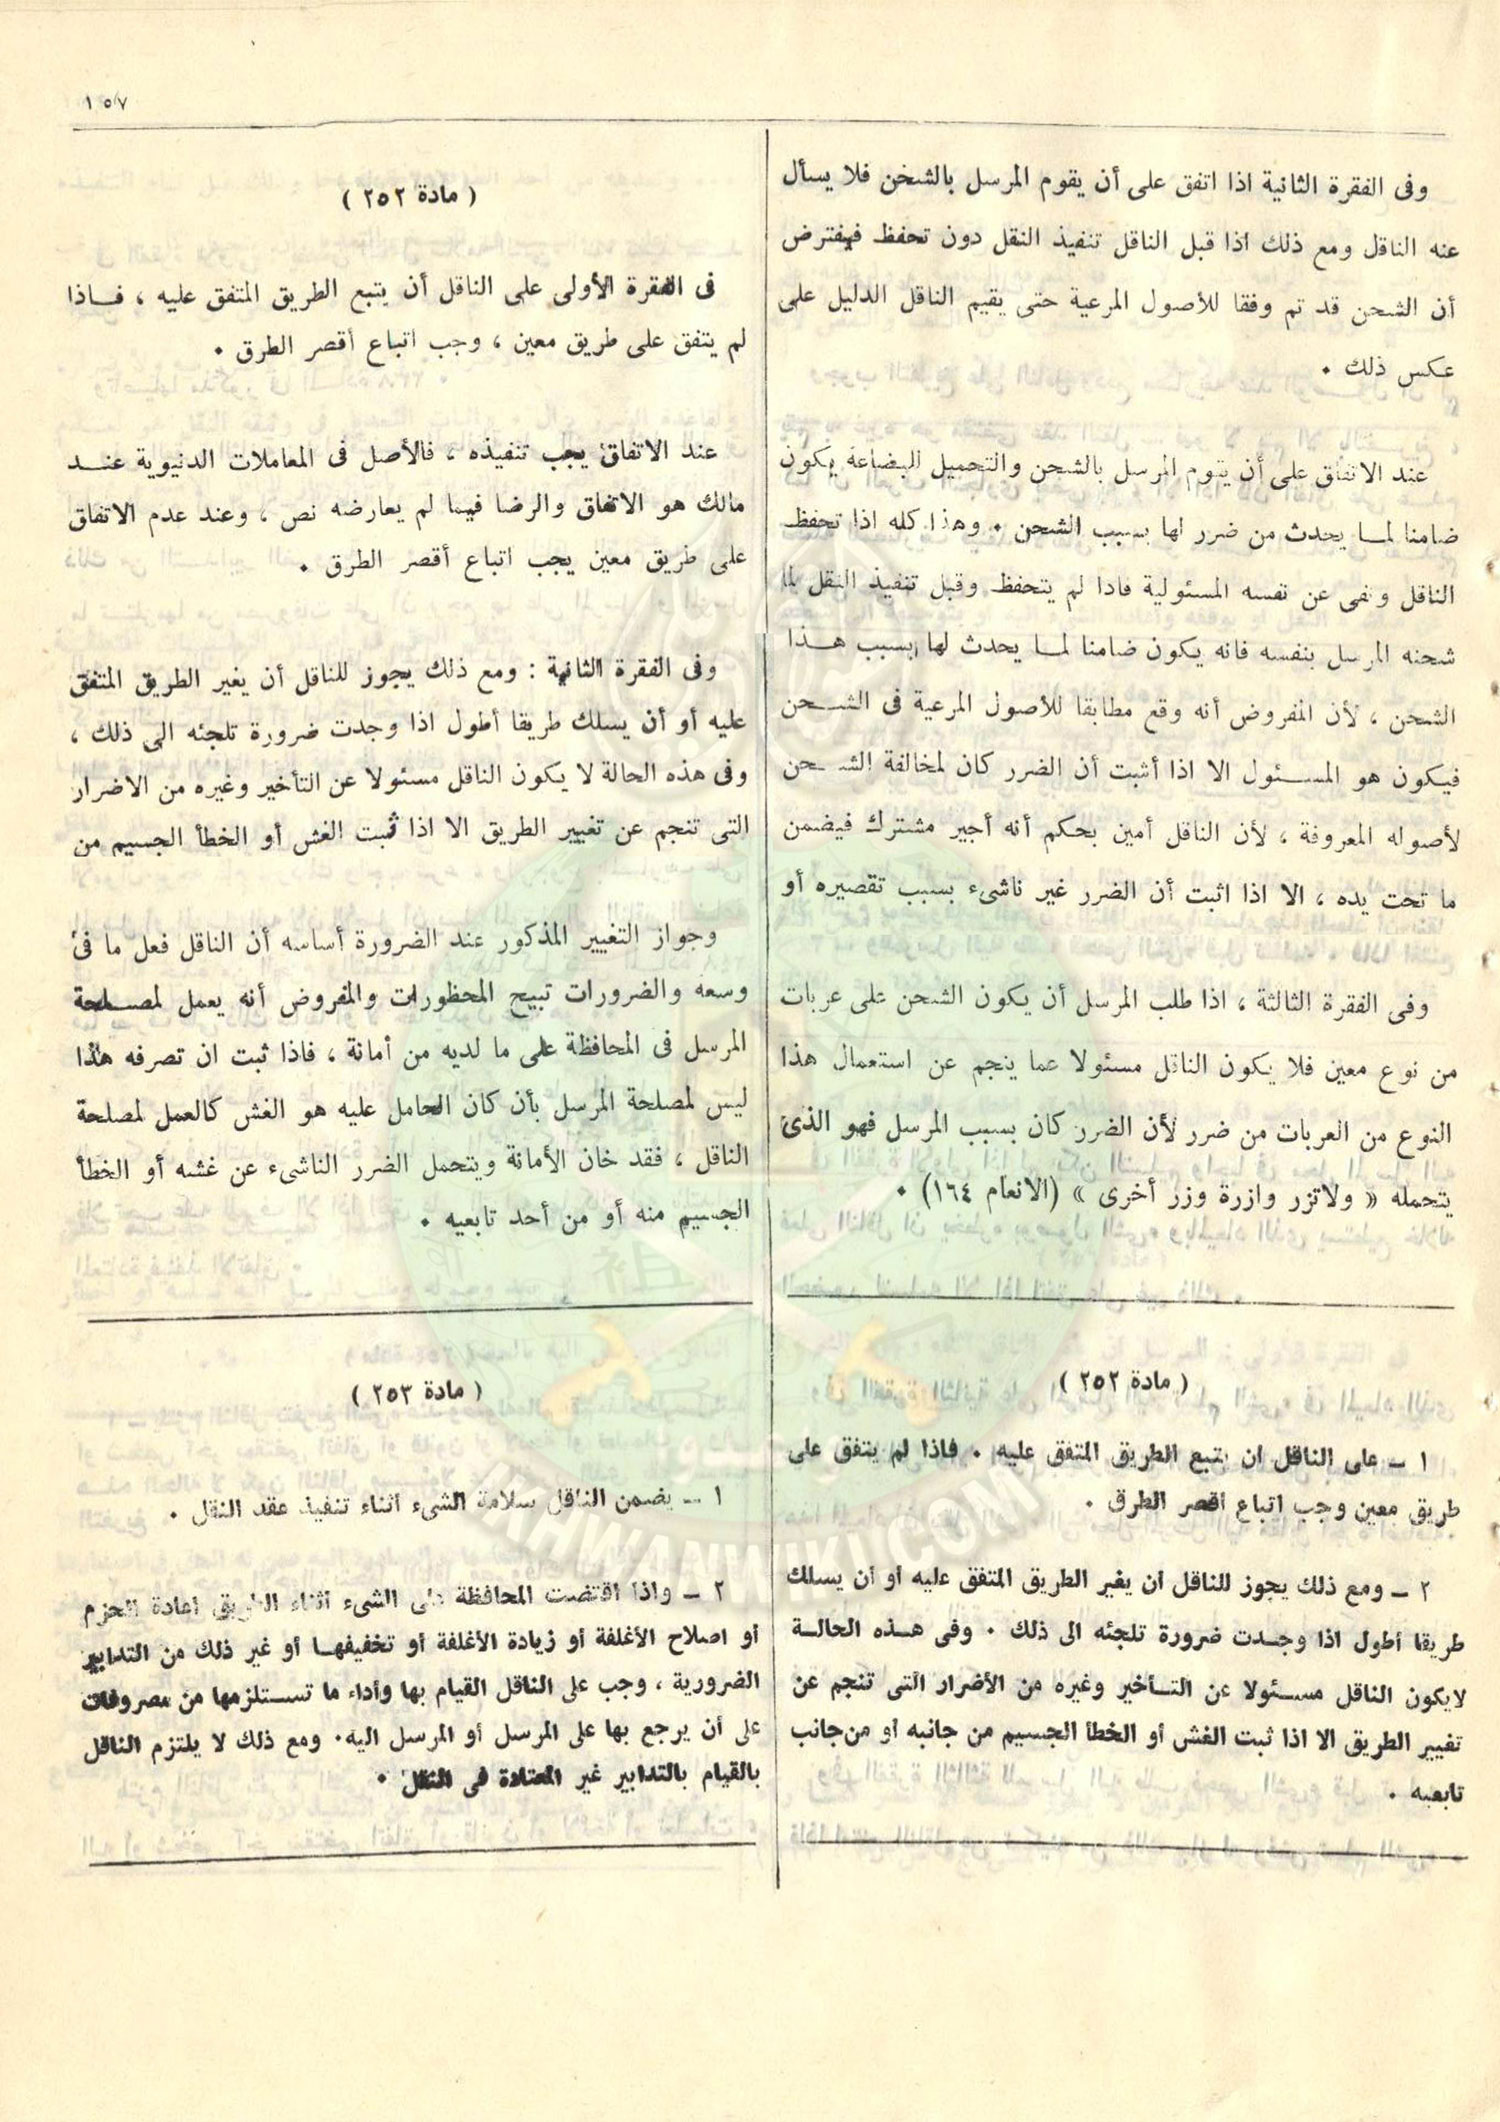 ١٥٧
وفى الفقرة الثانية اذا اتفق على أن يقوم المرسل بالشحن فلا يسأل
عنه الناقل ومع ذلك اذا قبل الناقل تنفيذ النقل دون تحفظ فيفترض
أن الشحن قد تم وفقا للأصول المرعية حتى يقيم الناقل الدليل على
عكس ذلك ٠
عند الاتفاق على أن يقوم المرسل بالشحن والتحميل للبضاعة يكون
ضامنا لمــا يحدث من ضرر لها بسبب الشحن ٠ وهذا كله اذا تحفظ
الناقل ونفى عن نفسه المسئولية فاذا لم يتحفظ وقبل تنفيذ النقل لما
شحنه المرسل بنفسه فانه يكون ضامنا لمــا يحدث لها بسبب هــذا
الشحن ، لأن المفروض أنه وقع مطابقا للأصول المرعية فى الشــحن
فيكون هو المســئول الا اذا أثبت أن الضرر كان لمخالفة الشــحن
لأصوله المعروفة ، لأن الناقل أمين بحكم أنه أجير مشترك فيضمن
ما تحت يده ، الا اذا اثبت أن الضرر غير ناشىء بسبب تقصيره أو
وفى الفقرة الثالثة ، اذا طلب المرسل أن يكون الشحن على عربات
من نوع معين فلا يكون الناقل مسئولا عما ينجم عن استعمال هذا
النوع من العربات من ضرر لأن الضرر كان بسبب المرسل فهو الذى
يتحمله « ولاتزر وازرة وزر أخرى » (الانعام ١٦٤) ٠
( مادة ٢٥٢ )
١ ــ على الناقل ان يتبع الطريق المتفق عليه ٠ فاذا لم يتفق على
طريق معين وجب اتباع أقصر الطرق ٠
٢ ــ ومع ذلك يجوز للناقل أن يغير الطريق المتفق عليه أو أن يسلك
طريقا أطول اذا وجــدت ضرورة تلجئه الى ذلك ٠ وفى هــذه الحالــة
لايكون الناقل مســئولا عن التــأخير وغيره من الأضرار التى تنجم عن
تغيير الطريق الا اذا ثبت الغش أو الخطأ الجسيم من جانبه أو من جانب
تابعيه ٠
( مادة ٢٥٢ )
فى الفقرة الأولى على الناقل أن يتبع الطريق المتفق عليه ، فــاذا
لم يتفق على طريق معين ، وجب اتباع أقصر الطرق ٠
عند الاتفاق يجب تنفيذه ، فالأصل فى المعاملات الدنيوية عنــد
مالك هو الاتفاق والرضا فيما لم يعارضه نص ، وعند عدم الاتفاق
على طريق معين يجب اتباع أقصر الطرق ٠
وفى الفقرة الثانية : ومع ذلك يجوز للناقل أن يغير الطريق المتفق
عليه أو أن يسلك طريقا أطول اذا وجدت ضرورة تلجئه الى ذلك ،
وفى هذه الحالة لا يكون الناقل مسئولا عن التأخير وغيره من الاضرار
التى تنجم عن تغيير الطريق الا اذا ثبت الغش أو الخطأ الجسيم من
وجواز التغيير المذكور عند الضرورة أساسه أن الناقل فعل ما فى
وسعه والضرورات تبيح المحظورات والمفروض أنه يعمل لمصــلحة
المرسل فى المحافظة على ما لديه من أمانة ، فاذا ثبت ان تصرفه هذا
ليس لمصلحة المرسل بأن كان الحامل عليه هو الغش كالعمل لمصلحة
الناقل ، فقد خان الأمانة ويتحمل الضرر الناشىء عن غشه أو الخطأ
الجسيم منه أو من أحد تابعيه ٠
( مادة ٢٥٣ )
١ ــ يضمن الناقل سلامة الشىء أثناء تنفيذ عقد النقل ٠
٢ ــ واذا اقتضت المحافظة على الشىء أثناء الطريق اعادة الحزم
أو اصلاح الأغلفة أو زيادة الأغلفة أو تخفيفهــا أو غير ذلك من التدابير
الضرورية ، وجب على الناقل القيام بها وأداء ما تســتلزمها من مصروفات
على أن يرجع بها على المرسل أو المرسل اليه٠ ومع ذلك لا يلتزم الناقل
بالقيام بالتدابير غير المعتادة فى النقل ٠
IKHWANWIKI.COM